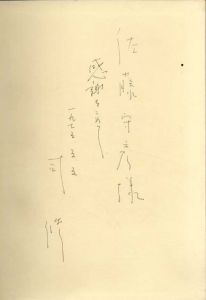 佐藤守彦様
感謝をこめて
一九七五.五.五